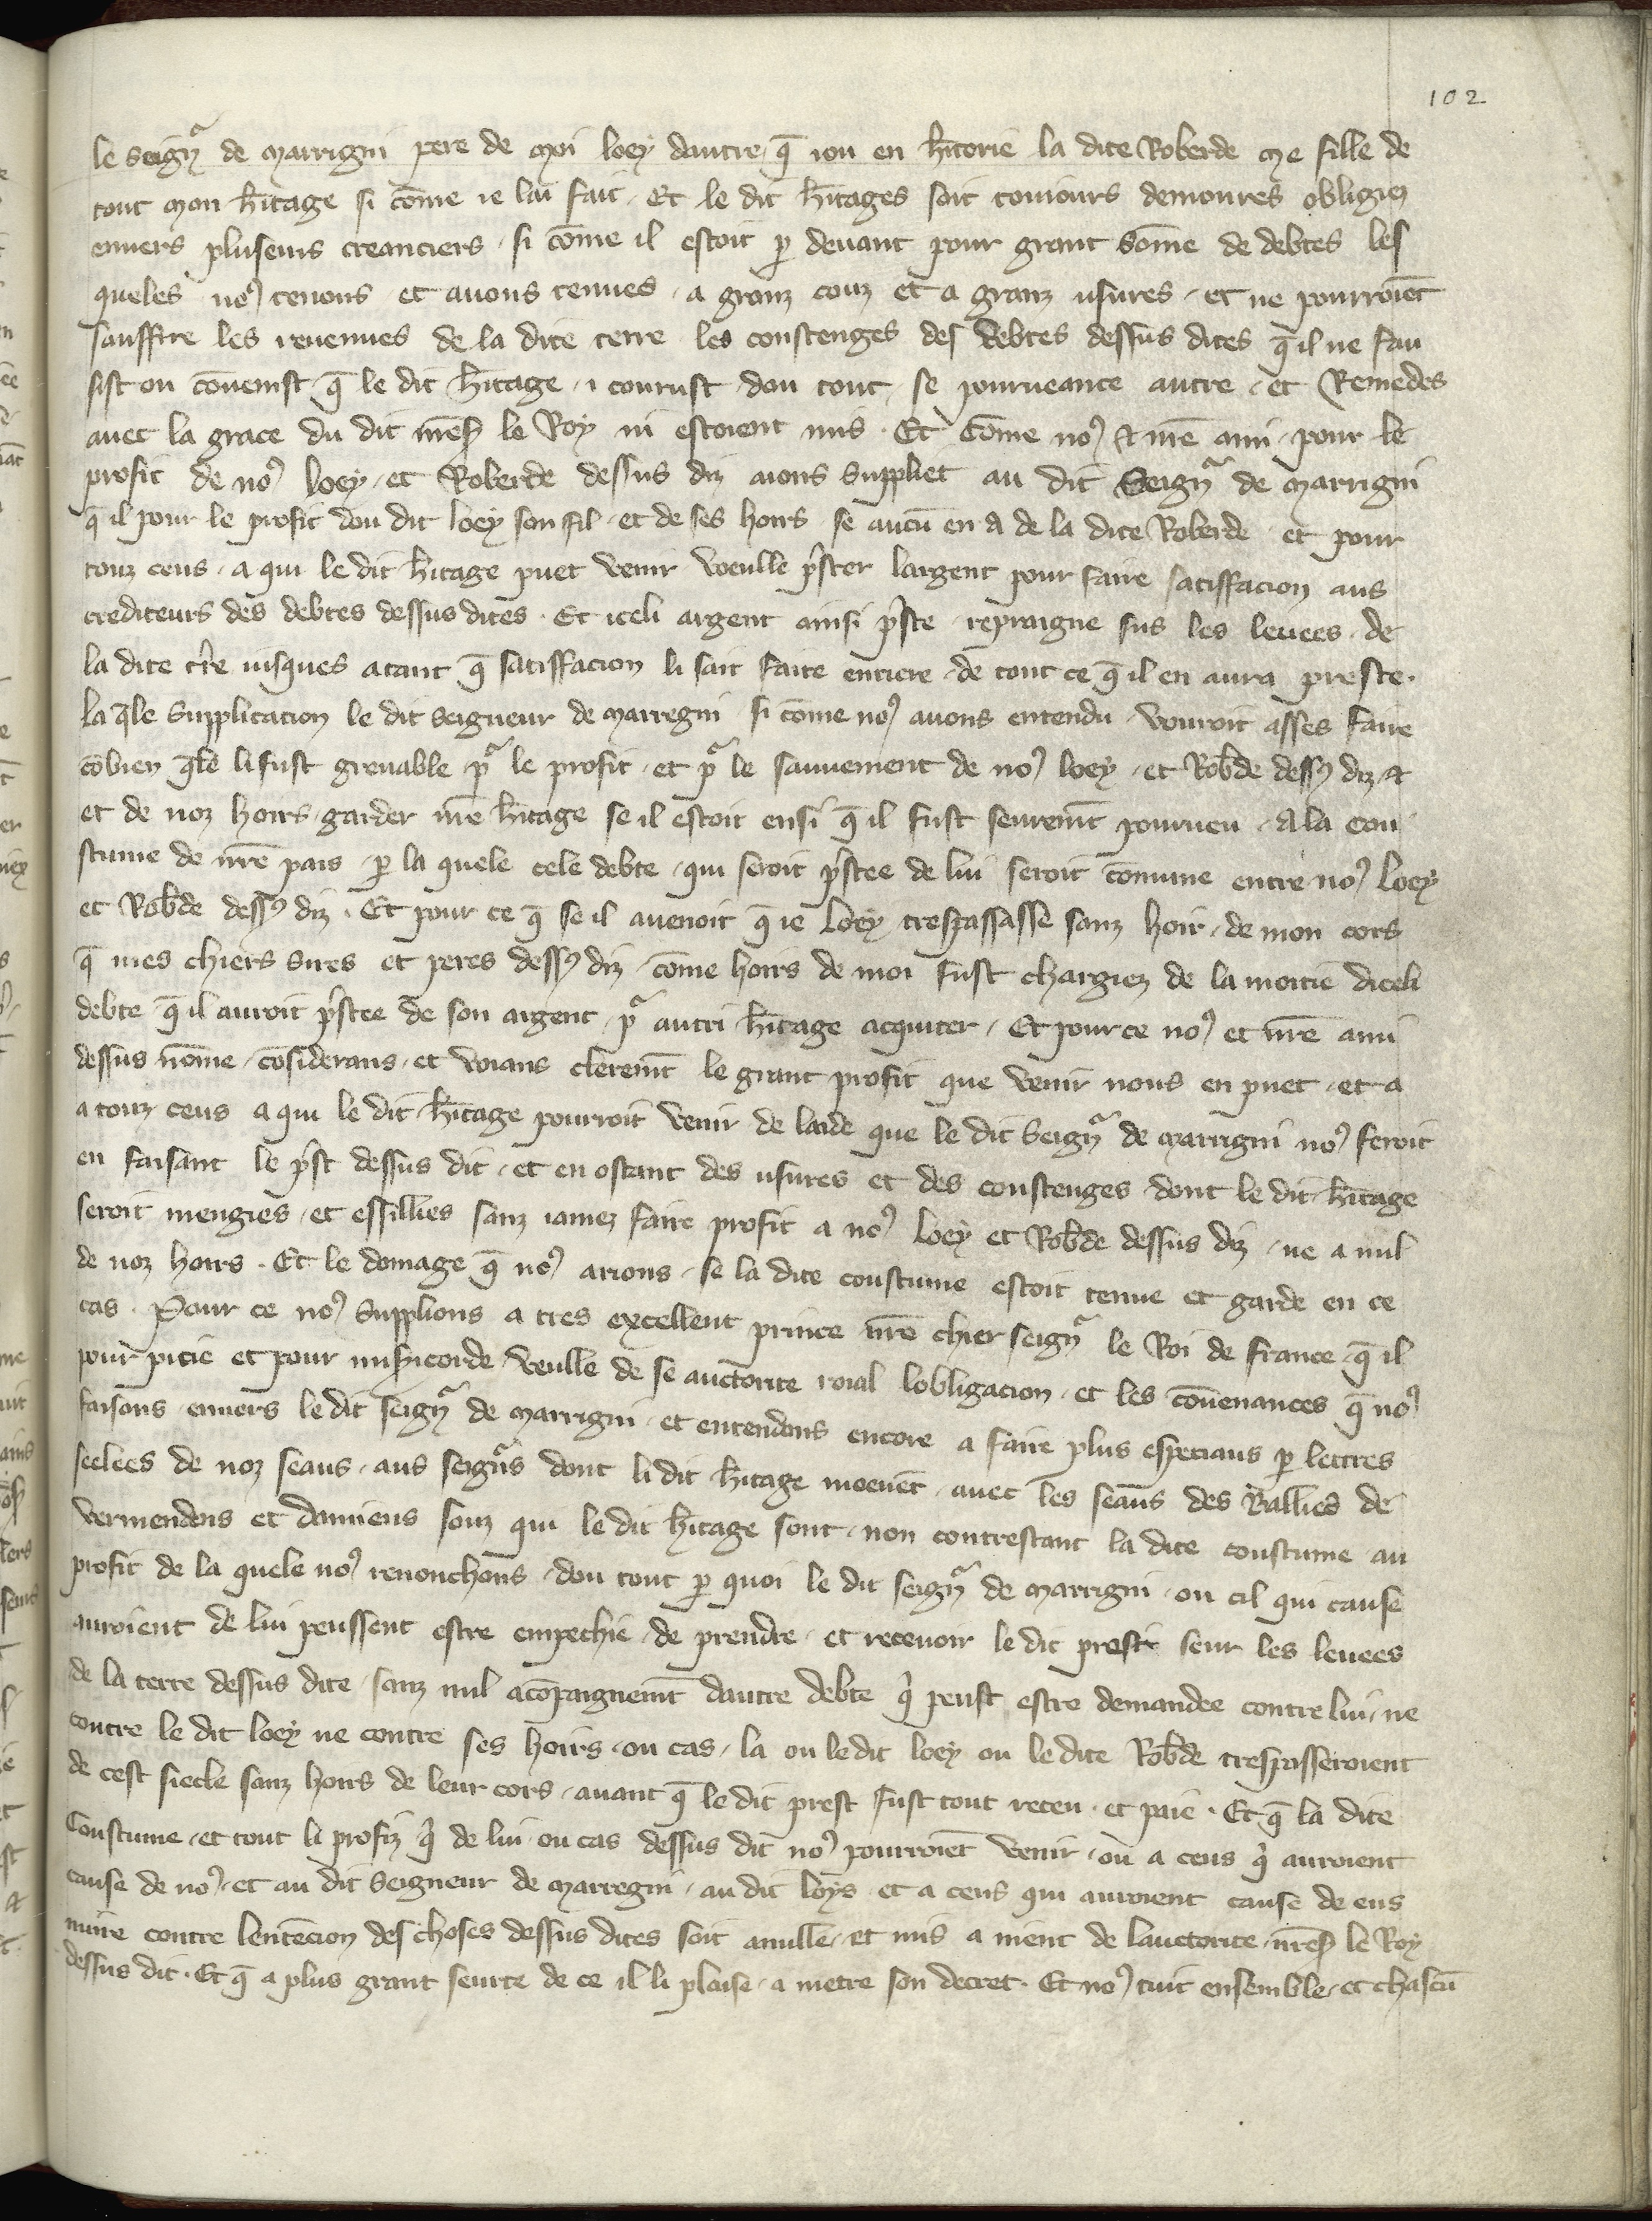 102
le seignr de Marrigni pere de moi loey dautre, q̄ iou en h̄itorie la dite Roberde me fille de
tout mon h̄itage si cōme ie lai fait. Et le dit h̄itages soit toniours demoures obligiez
enuers pluseurs creanciers. si cōme il estoit p̱ deuant pour grant sōme de debtes les
queles noꝰ tenons et auons tenues. a granz couz et a granz usures. et ne pourroiēt
souffire les reuenues de la dite terre les coustenges des debtes dessus dites q̄ il ne fau
sist ou cōuenist q̄ le dit h̄itage. i courust dou tout. se pourueance autre. et Remedes
auec la grace du dit mēs le Roy ni estoient mis. Et cōme noꝰ & nr̄e ami. pour le
profit de noꝰ loey. et Roberde dessus diz aions suppliet au dit Seignr de Marrigni
q̄ il pour le profit dou dit loey son fil. et de ses hoirs. se aucū en A de la dite Roberde. et pour
touz ceus. a qui le dit h̄itage puet venir voeulle p̄ster largent pour faire satiffacion aus
crediteurs des debtes dessus dites. Et iceli argent ainsi p̄ste repraigne sus les leuees. de
la dite tr̄e iusques atant q̄ satiffacion li sait faite entiere. de tout ce q̄ il en aura preste.
la q̄le supplicacion le dit seigneur de Marregni si cōme noꝰ auons entendu. vouroit asses faire
cōbien q̄le li fust greuable. pr le profit. et pr le sauuement de noꝰ loey. et Rob̄de dessꝰ diz &
et de noz hoirs. garder nr̄e h̄itage se il estoit ensi q̄ il fust seuremēt pourueu. A la cou
stume de nr̄e pais. p̱ la quele cele debte. qui seroit p̄stee de lui seroit cōmune entre noꝰ Loey
et Rob̄de dessꝰ diz. Et pour ce q̄ se il auenoit q̄ ie Loey trespassasse sanz hoir. de mon cors
q̄ mes chiers sires et peres dessꝰ diz. cōme hoirs de moi fust chargiez de la moitie diceli
debte q̄ il auroit p̄stee de son argent. pr autri h̄itage acquiter. Et pour ce noꝰ et nr̄e ami
dessus nōme. cōsiderans. et voians cleremēt le grant profit que venir nous en puet. et a
a touz ceus a qui le dit h̄itage pourroit venir de laide que le dit Seignr de Marrigni noꝰ feroit
en faisant le p̄st dessus dit. et en ostant des usures et des coustenges dont le dit h̄itage
seroit mengies. et essillies sanz iamez faire profit a noꝰ Loey et Rob̄de dessus diz. ne a nul
de noz hoirs. Et le domage q̄ noꝰ arions. se la dite coustume estoit tenue et garde en ce
cas. Pour ce noꝰ supplions a tres excellent prince nr̄e chier seignr le Roi de france. q̄ il
pour pitie et pour misicorde veulle de se auctorite roial lobligacion. et les cōuenances q̄ noꝰ
faisons. enuers le dit seignr de Marrigni. et entendons encore a faire plus especiaus p̱ lettres
seelees de noz seaus. aus seignrs dont li dit h̄itage moeuēt. auec les seaus des Baillies de
vermendens et damiens souz qui le dit h̄itage sont. non contrestant la dite coustume au
profit de la quele noꝰ renonchons. dou tout p̱ quoi le dit seignr de Marrigni. ou cil qui cause
auroient de lui peussent estre empechie. de prendre. et receuoir le dit prest seur les leuees
de la terre dessus dite. sanz nul acōpaignemēt dautre debte q̇ peust estre demandee contre lui. ne
contre le dit loey ne contre ses hoirs. ou cas. la ou le dit loey ou le dite Rob̄de trespasseroient
de cest siecle sanz hoirs de leur cors. auant q̄ le dit prest fust tout receu. et paie. Et q̄ la dite
Coustume. et tout li profiz q̇ de lui. ou cas dessus dit noꝰ pourroiēt venir. ou a ceus q̇ auroient
cause de noꝰ. et au dit Seigneur de Marregni. au dit loys. et a ceus qui auroient cause de eus
nuire contre lentēcion des choses dessus dites soit anulle. et mis a nient de lauctorite. mēs le Roy
dessus dit. Et q̄ a plus grant seurte de ce il li plaise. a metre son decret. Et noꝰ tuit ensemble. et chascū